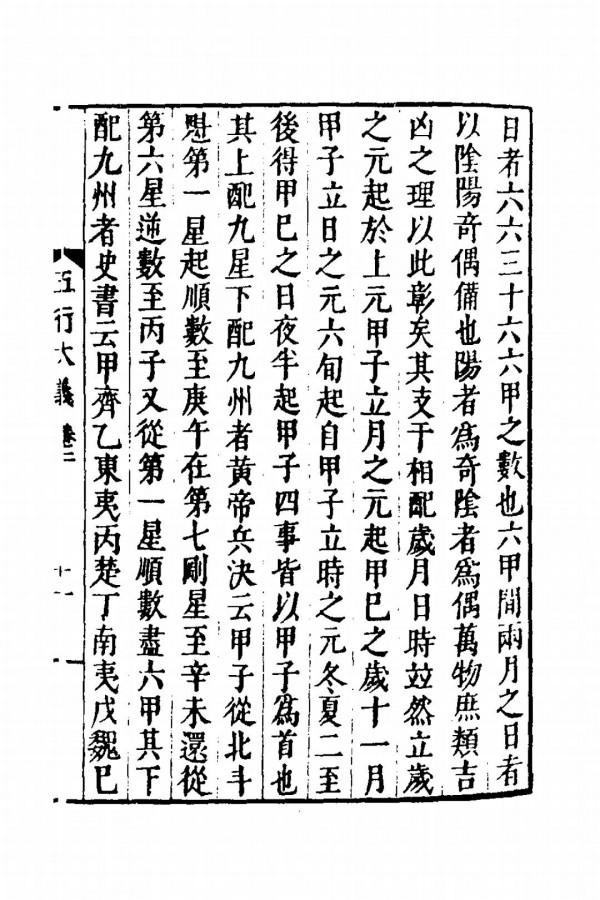 日者六六三十六六甲之數也六甲間兩月之日者
以陰陽奇偶備也陽者爲奇陰者爲偶萬物庶類吉
凶之理以此彰矣其支干相配歲月日時竝然立歲
之元起於上元甲子立月之元起甲巳之歲十一月
甲子立日之元六旬起自甲子立時之元冬夏二至
後得甲巳之日夜半起甲子四事皆以甲子爲首也
其上配九星下配九州者黄帝兵決云甲子從北斗
魁第一星起順數至庚午在第七剛星至辛未還從
第六星逆數至丙子又從第一星順數盡六甲其下
配九州者史書云甲齊乙東夷丙楚丁南夷戊魏巳
五行大義 卷二
十一